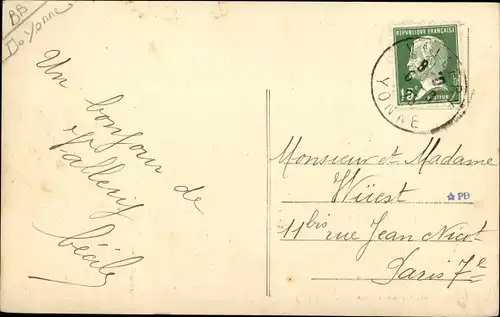 BB
Do Yonne
Un bonjour de
Vallery
Cécile
REPUBLIQUE FRANÇAISE
15c
PASTEUR
YONNE
Monsieur et Madame
Wüest
PB
11bis rue Jean Nicot
Paris 7e